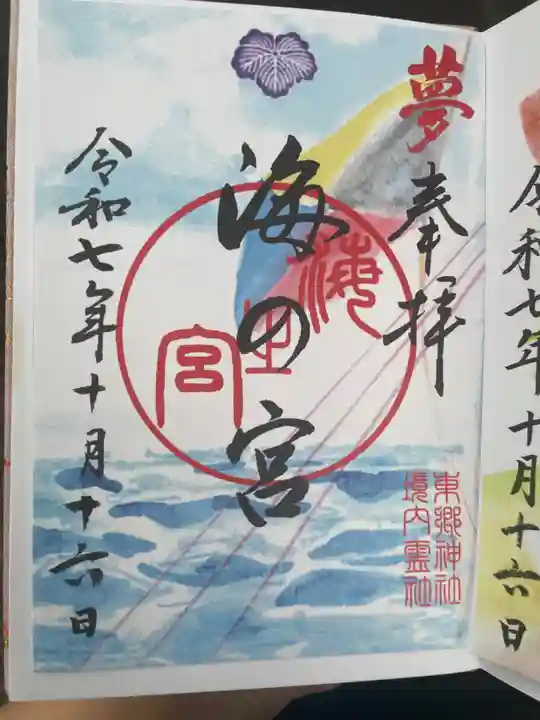 令和七年十月十六日
夢
奉拝
海の宮
海之宮
東郷神社
境内霊社
令和七年十月十六日